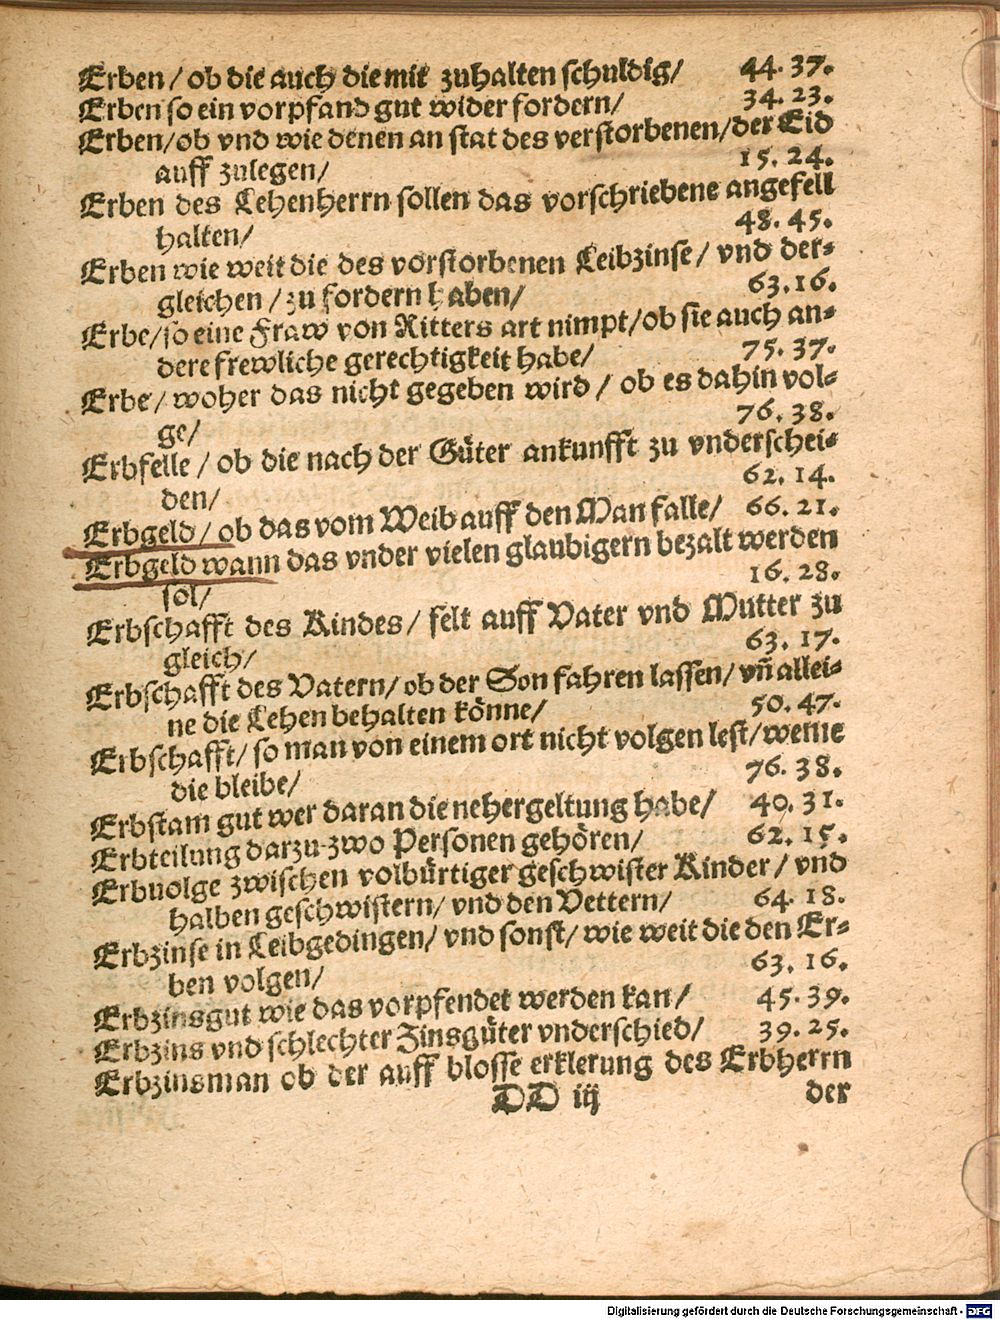 Erben / ob die auch die mit zuhalten schuldig / 44. 37.
Erben so ein vorpfand gut wider fordern / 34. 23.
Erben / ob vnd wie denen an stat des verstorbenen / der Eid
auff zulegen / 15. 24.
Erben des Lehenherrn sollen das vorschriebene angefell
halten / 48. 45.
Erben wie weit die des vorstorbenen Leibzinse / vnd der-
gleichen / zu fordern haben / 63. 16.
Erbe / so eine Fraw von Ritters art nimpt / ob sie auch an-
dere frewliche gerechtigkeit habe / 75. 37.
Erbe / woher das nicht gegeben wird / ob es dahin vol-
ge / 76. 38.
Erbfelle / ob die nach der Güter ankunfft zu vnderschei-
den / 62. 14.
Erbgeld / ob das vom Weib auff den Man falle / 66. 21.
Erbgeld wann das vnder vielen glaubigern bezalt werden
sol / 16. 28.
Erbschafft des Kindes / felt auff Vater vnd Mutter zu
gleich / 63. 17.
Erbschafft des Vatern / ob der Son fahren lassen / vñ allei-
ne die Lehen behalten könne / 50. 47.
Erbschafft / so man von einem ort nicht volgen lest / weme
die bleibe / 76. 38.
Erbstam gut wer daran die nehergeltung habe / 40. 31.
Erbteilung darzu zwo Personen gehören / 62. 15.
Erbuolge zwischen volbürtiger geschwister Kinder / vnd
halben geschwistern / vnd den Vettern / 64. 18.
Erbzinse in Leibgedingen / vnd sonst / wie weit die den Er-
ben volgen / 63. 16.
Erbzinsgut wie das vorpfendet werden kan / 45. 39.
Erbzins vnd schlechter Zinsgüter vnderschied / 39. 25.
Erbzinsman ob der auff blosse erklerung des Erbherrn
DD iij der
Digitalisierung gefördert durch die Deutsche Forschungsgemeinschaft - DFG